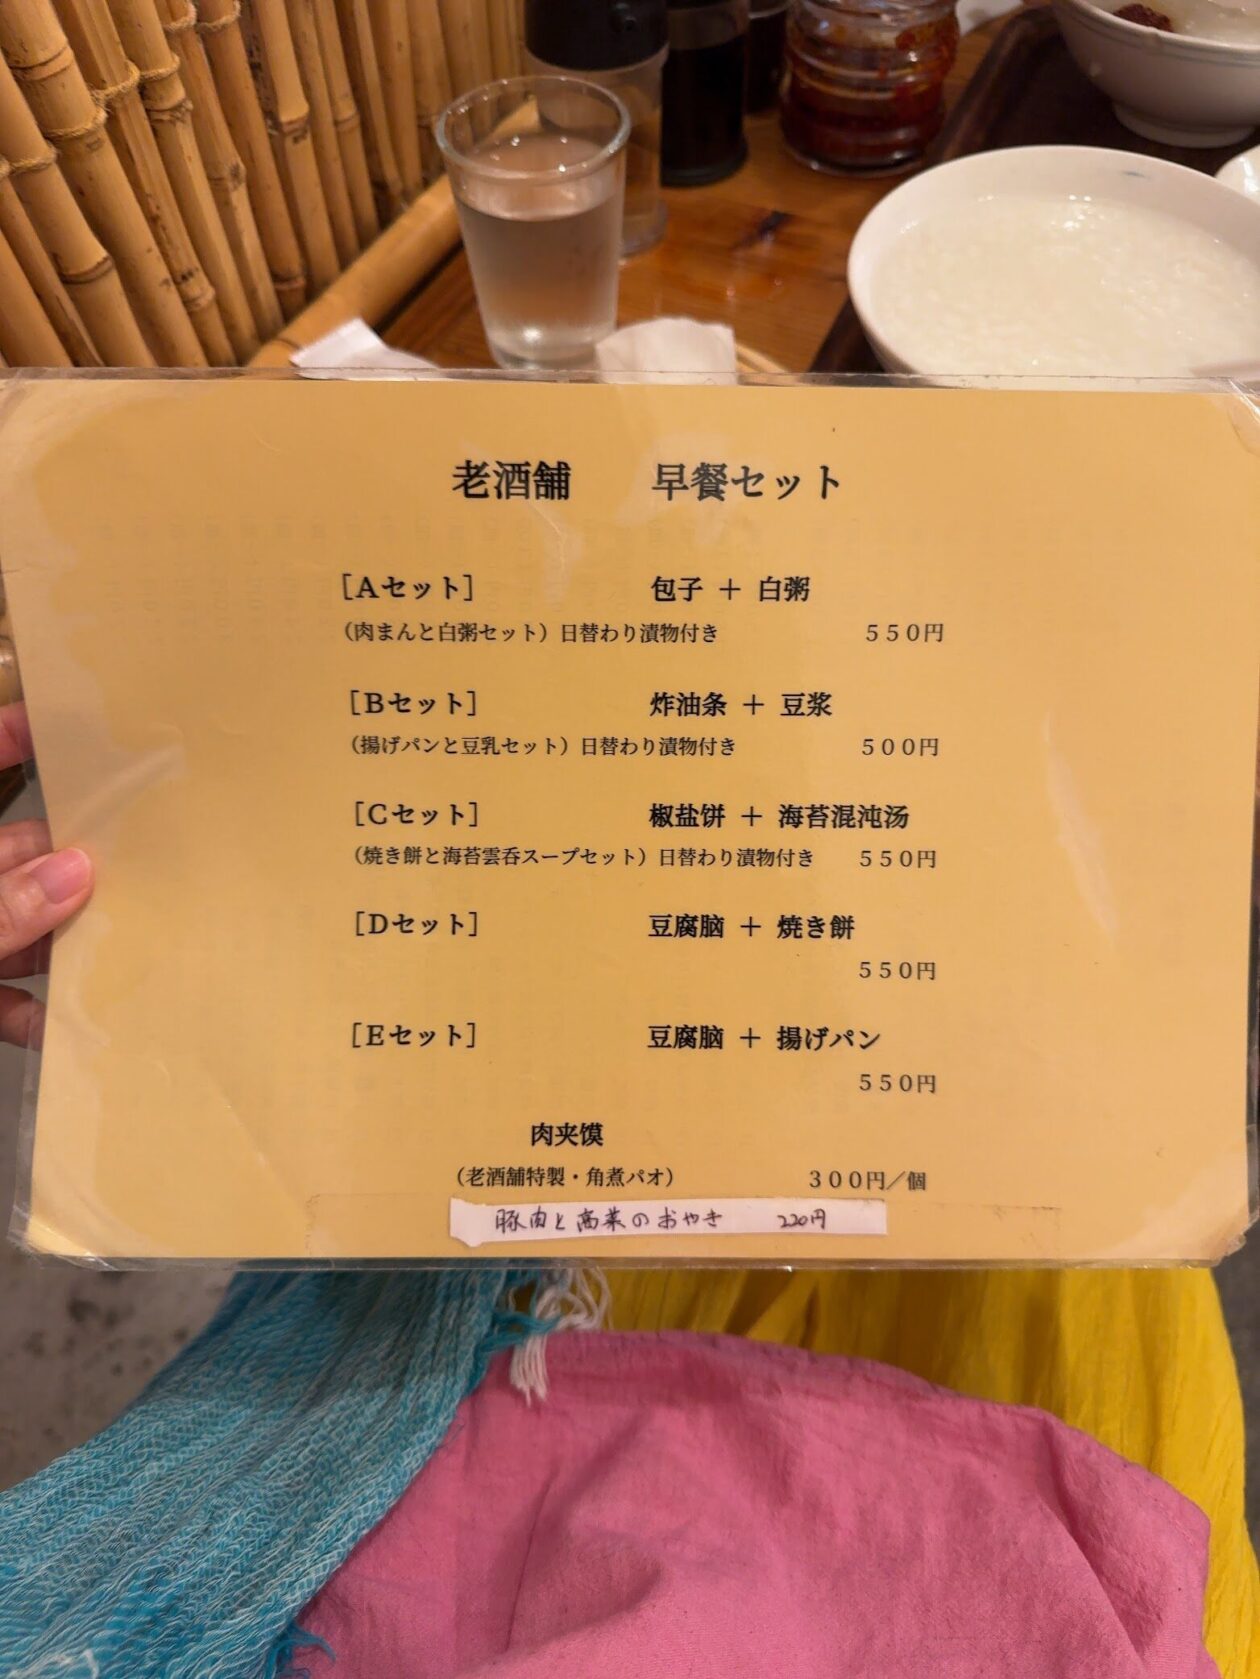 老酒舗　早餐セット
［Aセット］　包子 ＋ 白粥
（肉まんと白粥セット）日替わり漬物付き　５５０円
［Bセット］　炸油条 ＋ 豆浆
（揚げパンと豆乳セット）日替わり漬物付き　５００円
［Cセット］　椒盐饼 ＋ 海苔混沌汤
（焼き餅と海苔雲呑スープセット）日替わり漬物付き　５５０円
［Dセット］　豆腐脑 ＋ 焼き餅
５５０円
［Eセット］　豆腐脑 ＋ 揚げパン
５５０円
肉夹馍
（老酒舗特製・角煮パオ）　３００円／個
豚肉と高菜のおやき　220円